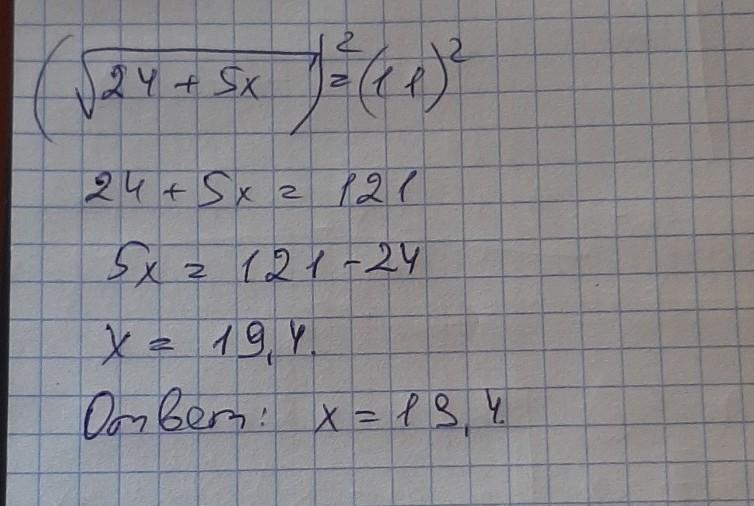 (√24 + 5x)² = (11)²
24 + 5x = 121
5x = 121 - 24
x = 19,4.
Ответ: x = 19,4.